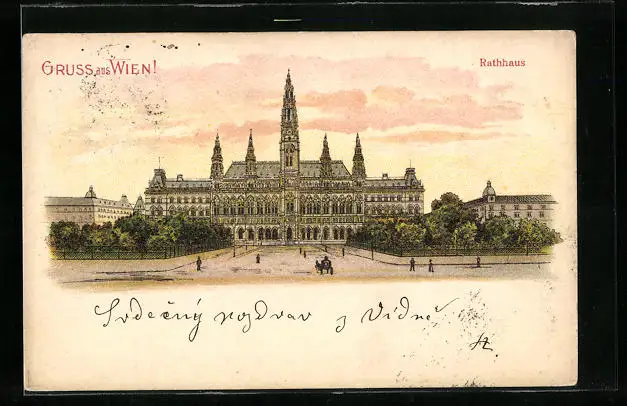 Gruss aus Wien!
Rathhaus
Srdečný pozdrav z Vídně